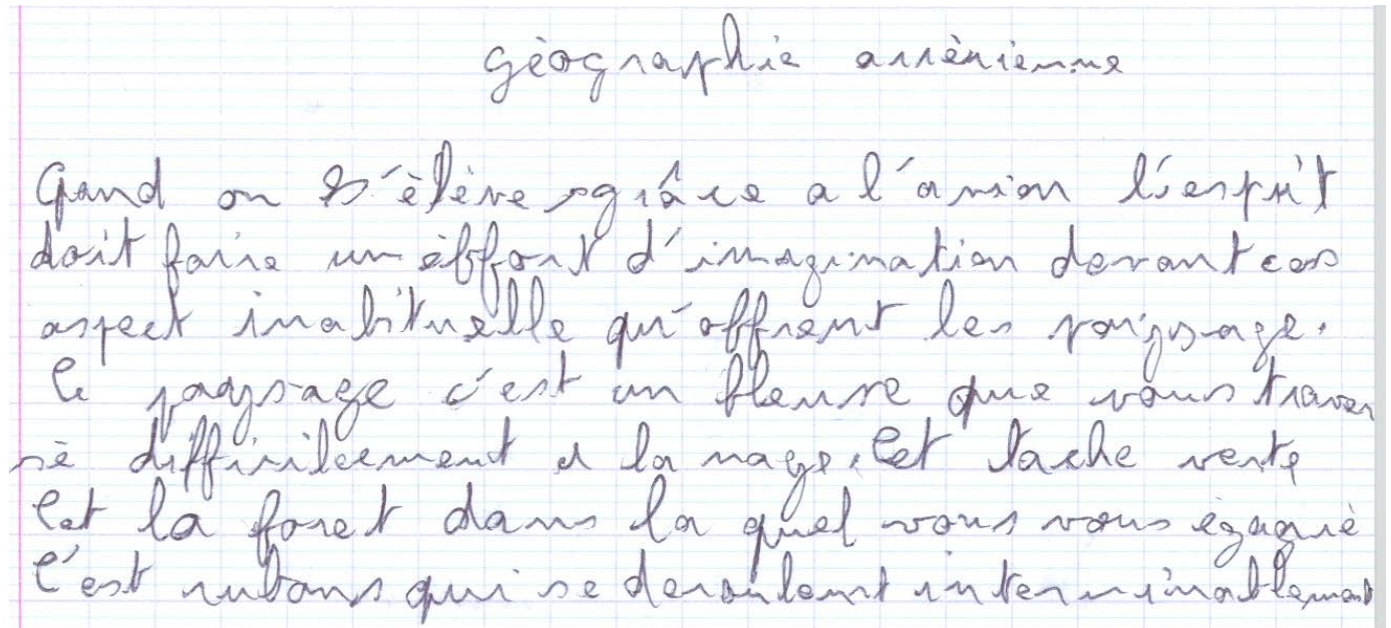 géographie arrèrienne
Gand on s'élève grâce a l'avion l'esprit
doit faire un éffort d'imagination devant ces
aspect inabituelle qu'offrent les payysage.
Ce paysage c'est un fleuve que vous traver
sè difficilcement a la nage. Cet tache verte
Cet la foret dans la quel vous vous égarè
C'est rubans qui se deroulent interminablement